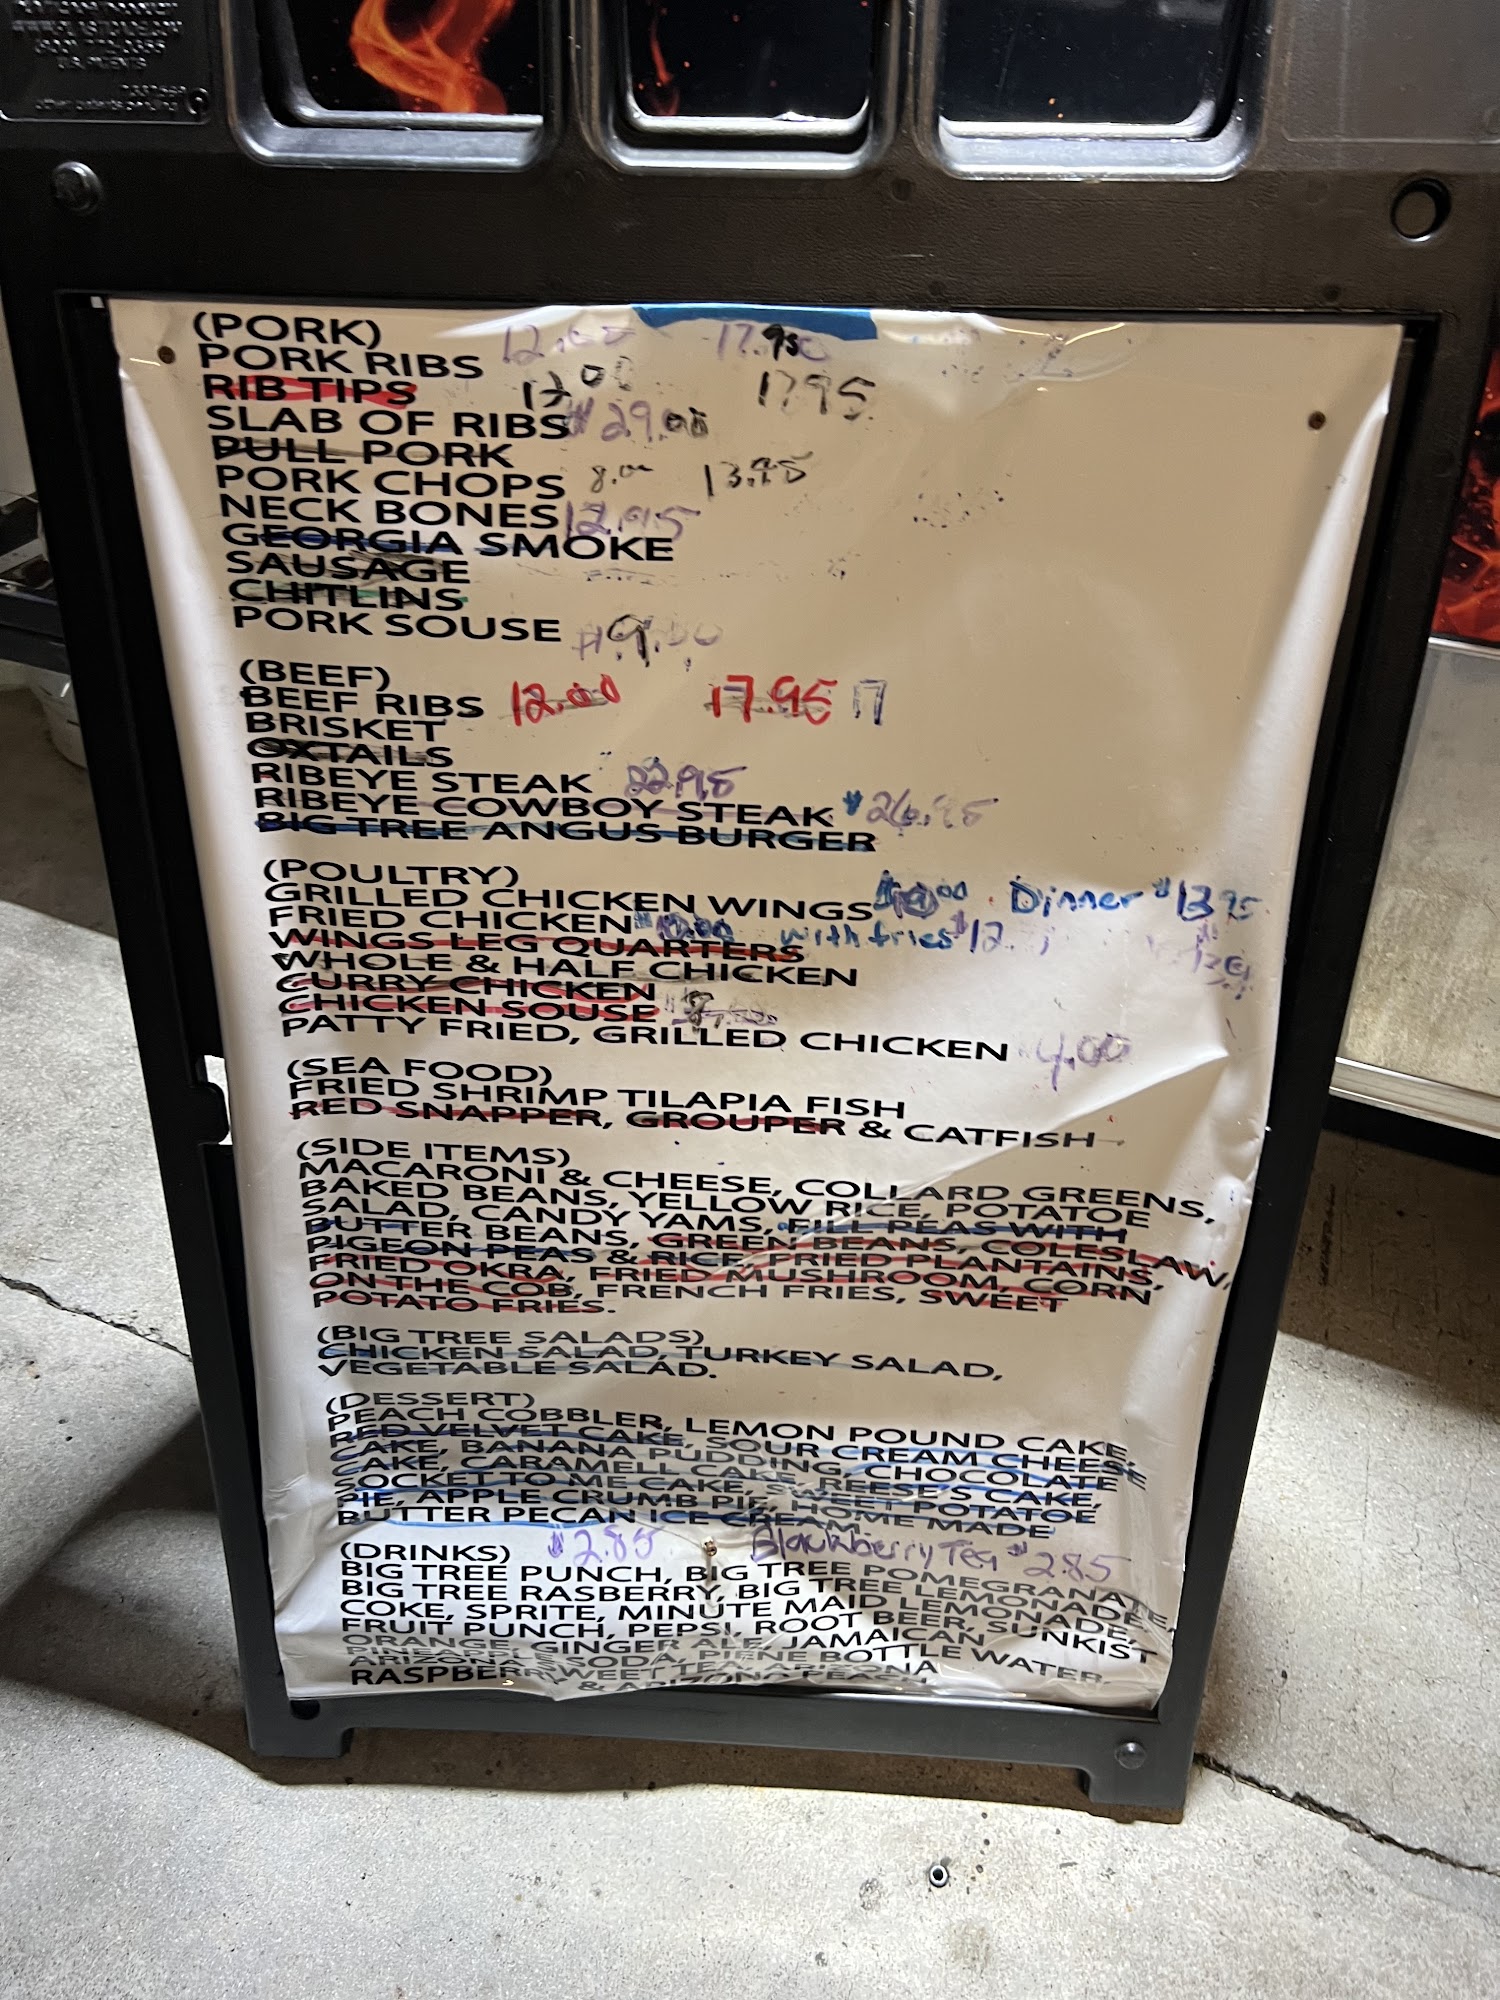 (PORK)
PORK RIBS 12.00 17.95
RIB TIPS 12.00 17.95
SLAB OF RIBS $29.00
PULL PORK
PORK CHOPS 8.00 13.95
NECK BONES 12.95
GEORGIA SMOKE
SAUSAGE
CHITLINS
PORK SOUSE
(BEEF)
BEEF RIBS 12.00 17.95 17
BRISKET
OXTAILS
RIBEYE STEAK 22.95
RIBEYE COWBOY STEAK $26.95
BIG TREE ANGUS BURGER
(POULTRY)
GRILLED CHICKEN WINGS Dinner $13.95
FRIED CHICKEN with fries $12
WINGS LEG QUARTERS
WHOLE & HALF CHICKEN
CURRY CHICKEN
CHICKEN SOUSE
PATTY FRIED, GRILLED CHICKEN 4.00
(SEA FOOD)
FRIED SHRIMP TILAPIA FISH
RED SNAPPER, GROUPER & CATFISH
(SIDE ITEMS)
MACARONI & CHEESE, COLLARD GREENS,
BAKED BEANS, YELLOW RICE, POTATOE
SALAD, CANDY YAMS, FILL PEAS WITH
BUTTER BEANS, GREEN BEANS, COLESLAW,
PIGEON PEAS & RICE, FRIED PLANTAINS,
FRIED OKRA, FRIED MUSHROOM, CORN
ON THE COB, FRENCH FRIES, SWEET
POTATO FRIES.
(BIG TREE SALADS)
CHICKEN SALAD, TURKEY SALAD,
VEGETABLE SALAD.
(DESSERT)
PEACH COBBLER, LEMON POUND CAKE,
RED VELVET CAKE, SOUR CREAM CHEESE
CAKE, BANANA PUDDING, CHOCOLATE
CAKE, CARAMELL CAKE, REESE'S CAKE,
SOCKET TO ME CAKE, SWEET POTATOE
PIE, APPLE CRUMB PIE, HOME MADE
BUTTER PECAN ICE CREAM.
(DRINKS) $2.85 Blackberry Tea $2.85
BIG TREE PUNCH, BIG TREE POMEGRANATE,
BIG TREE RASBERRY, BIG TREE LEMONADE,
COKE, SPRITE, MINUTE MAID LEMONADE,
FRUIT PUNCH, PEPSI, ROOT BEER, SUNKIST
ORANGE, GINGER ALE, JAMAICAN
SODA, BOTTLE WATER,
ARIZONA SWEET TEA, ARIZONA
RASPBERRY & ARIZONA PEACH